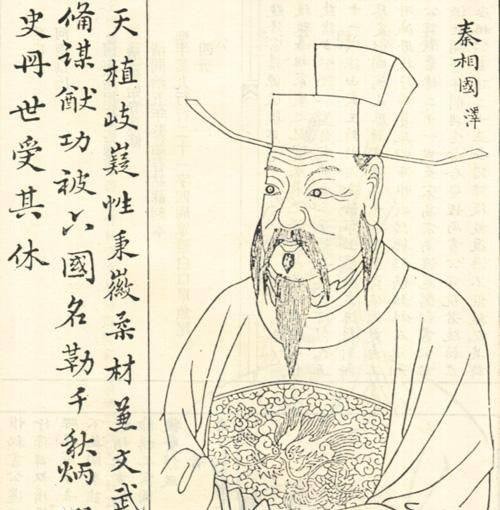 秦相國澤
天植岐嶷性秉徽柔材兼文武
備謀猷功被六國名勒千秋炳
史冊世受其休